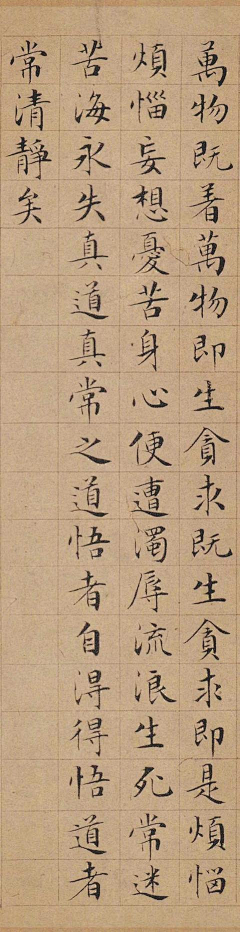 萬物既着萬物即生貪求既生貪求即是煩惱
煩惱妄想憂苦身心便遭濁辱流浪生死常迷
苦海永失真道真常之道悟者自得得悟道者
常清靜矣